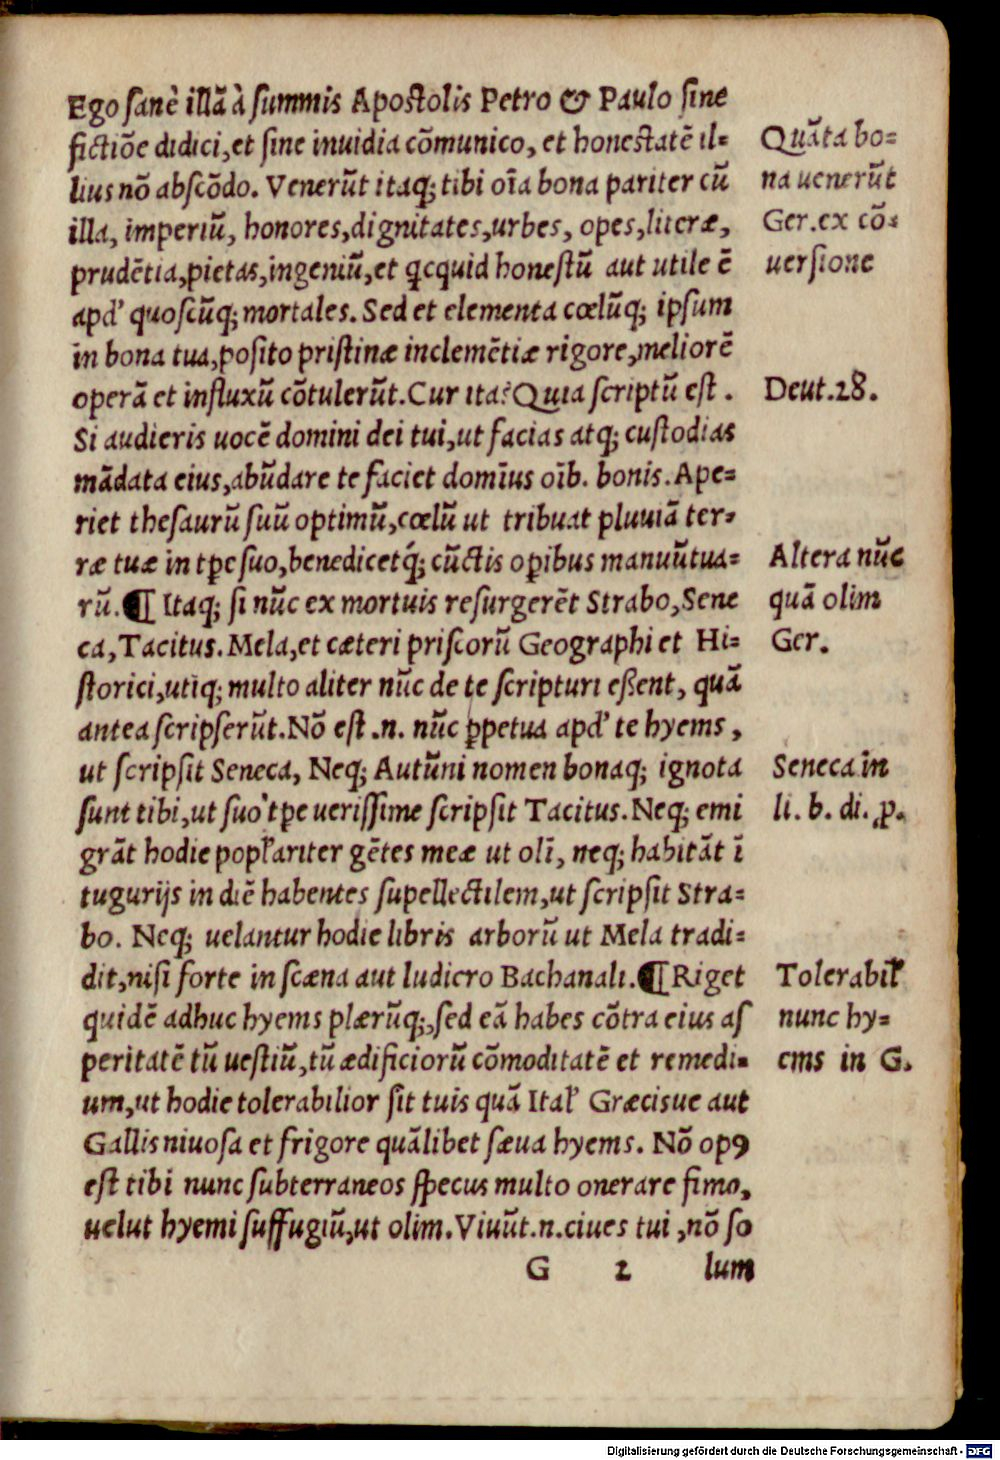 Ego sanè illā à summis Apostolis Petro & Paulo sine
fictiōe didici, et sine inuidia cōmunico, et honestatē il=
lius nō abscōdo. Venerūt itaq; tibi oīa bona pariter cū
illa, imperiū, honores, dignitates, urbes, opes, literæ,
prudētia, pietas, ingeniū, et qcquid honestū aut utile ē
apd' quoscūq; mortales. Sed et elementa cœlūq; ipsum
in bona tua, posito pristinæ inclemētiæ rigore, meliorē
operā et influxū cōtulerūt. Cur ita? Quia scriptū est .
Si audieris uocē domini dei tui, ut facias atq; custodias
mādata eius, abūdare te faciet domīus oīb. bonis. Ape=
riet thesaurū suū optimū, cœlū ut tribuat pluuiā ter=
ræ tuæ in tpe suo, benedicetq́; cūctis opibus manuūtua=
rū. ¶ Itaq; si nūc ex mortuis resurgerēt Strabo, Sene
ca, Tacitus. Mela, et cæteri priscorū Geographi et Hi=
storici, utiq; multo aliter nūc de te scripturi eßent, quā
antea scripserūt. Nō est .n. nūc ꝑpetua apd' te hyems ,
ut scripsit Seneca, Neq; Autūni nomen bonaq; ignota
sunt tibi, ut suo tpe uerissime scripsit Tacitus. Neq; emi
grāt hodie popľariter gētes meæ ut olī, neq; habitāt ī
tugurijs in diē habentes supellectilem, ut scripsit Stra=
bo. Neq; uelantur hodie libris arborū ut Mela tradi=
dit, nisi forte in scæna aut ludicro Bachanali. ¶ Riget
quidē adhuc hyems plærūq;, sed eā habes cōtra eius as
peritatē tū uestiū, tū ædificiorū cōmoditatē et remedi=
um, ut hodie tolerabilior sit tuis quā Ital' Græcisue aut
Gallis niuosa et frigore quālibet sæua hyems. Nō opꝰ
est tibi nunc subterraneos specus multo onerare fimo,
uelut hyemi suffugiū, ut olim. Viuūt .n. ciues tui , nō so
G 2 lum
Quāta bo=
na uenerūt
Ger. ex cō=
uersione
Deut. 28.
Altera nūc
quā olim
Ger.
Seneca in
li. b. di. p.
Tolerabil'
nunc hy=
ems in G.
Digitalisierung gefördert durch die Deutsche Forschungsgemeinschaft - DFG